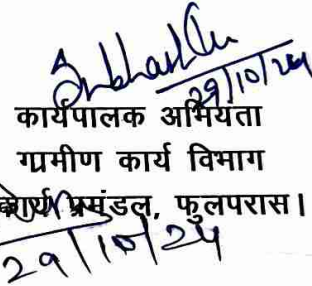 29/10/24
कार्यपालक अभियंता
ग्रामीण कार्य विभाग
कार्य प्रमंडल, फुलपरास।
29/10/24